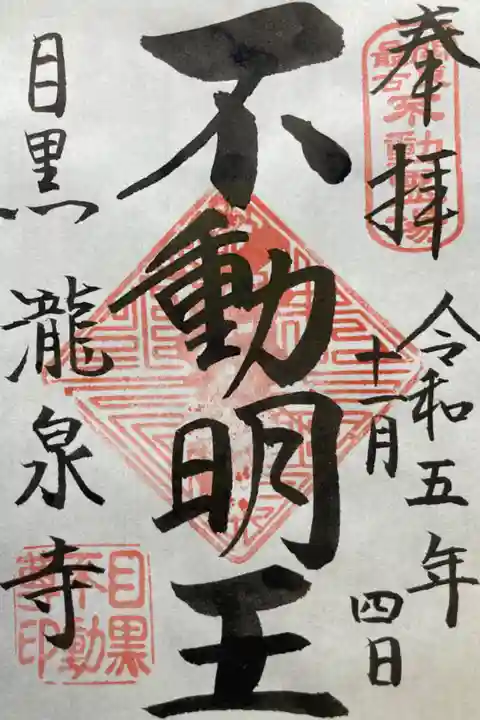 奉拝
令和五年
十一月
四日
不動明王
目黒 瀧泉寺
目黒
不動
尊印